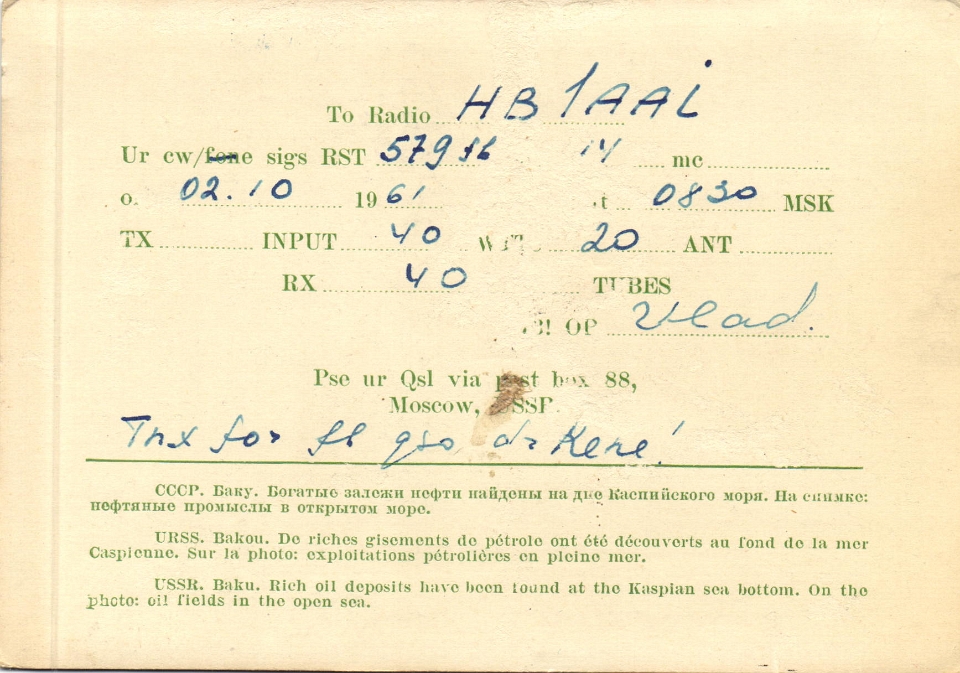 To Radio HB1AAi
Ur cw/fone sigs RST 579 fb 14 mc
02.10 1961 0830 MSK
TX INPUT 40 20 ANT
RX 40 TUBES
OP Vlad.
Pse ur Qsl via post box 88,
Moscow, USSR.
Tnx for fb qso, dr Rene!
СССР. Баку. Богатые залежи нефти найдены на дне Каспийского моря. На снимке:
нефтяные промыслы в открытом море.
URSS. Bakou. De riches gisements de pétrole ont été découverts au fond de la mer
Caspienne. Sur la photo: exploitations pétrolières en pleine mer.
USSR. Baku. Rich oil deposits have been found at the Kaspian sea bottom. On the
photo: oil fields in the open sea.